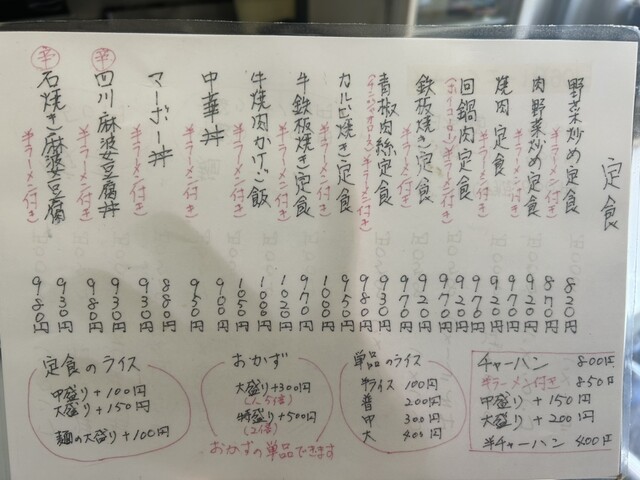 定食
野菜炒め定食 820円
半ラーメン付き 870円
肉野菜炒め定食 920円
半ラーメン付き 970円
焼肉定食 920円
半ラーメン付き 970円
回鍋肉定食 920円
(ホイコーロー)半ラーメン付き 970円
鉄板焼き定食 920円
半ラーメン付き 970円
青椒肉絲定食 930円
(チンジャオロース)半ラーメン付き 980円
カルビ焼き定食 950円
半ラーメン付き 1000円
牛鉄板焼き定食 970円
半ラーメン付き 1020円
牛焼肉かけご飯 1000円
半ラーメン付き 1050円
中華丼 900円
半ラーメン付き 950円
マーボー丼 880円
半ラーメン付き 930円
辛 四川麻婆豆腐丼 930円
半ラーメン付き 980円
辛 石焼き麻婆豆腐 930円
半ラーメン付き 980円
定食のライス
中盛り+100円
大盛り+150円
麺の大盛り+100円
おかず
大盛り+300円
(1.5倍)
特盛り+500円
(2倍)
おかずの単品できます
単品のライス
半ライス 100円
普 200円
中 300円
大 400円
チャーハン 800円
半ラーメン付き 850円
中盛り +150円
大盛り +200円
半チャーハン 400円